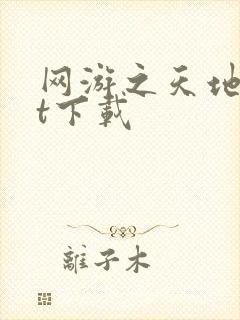 网游之天地
t下载
離子木